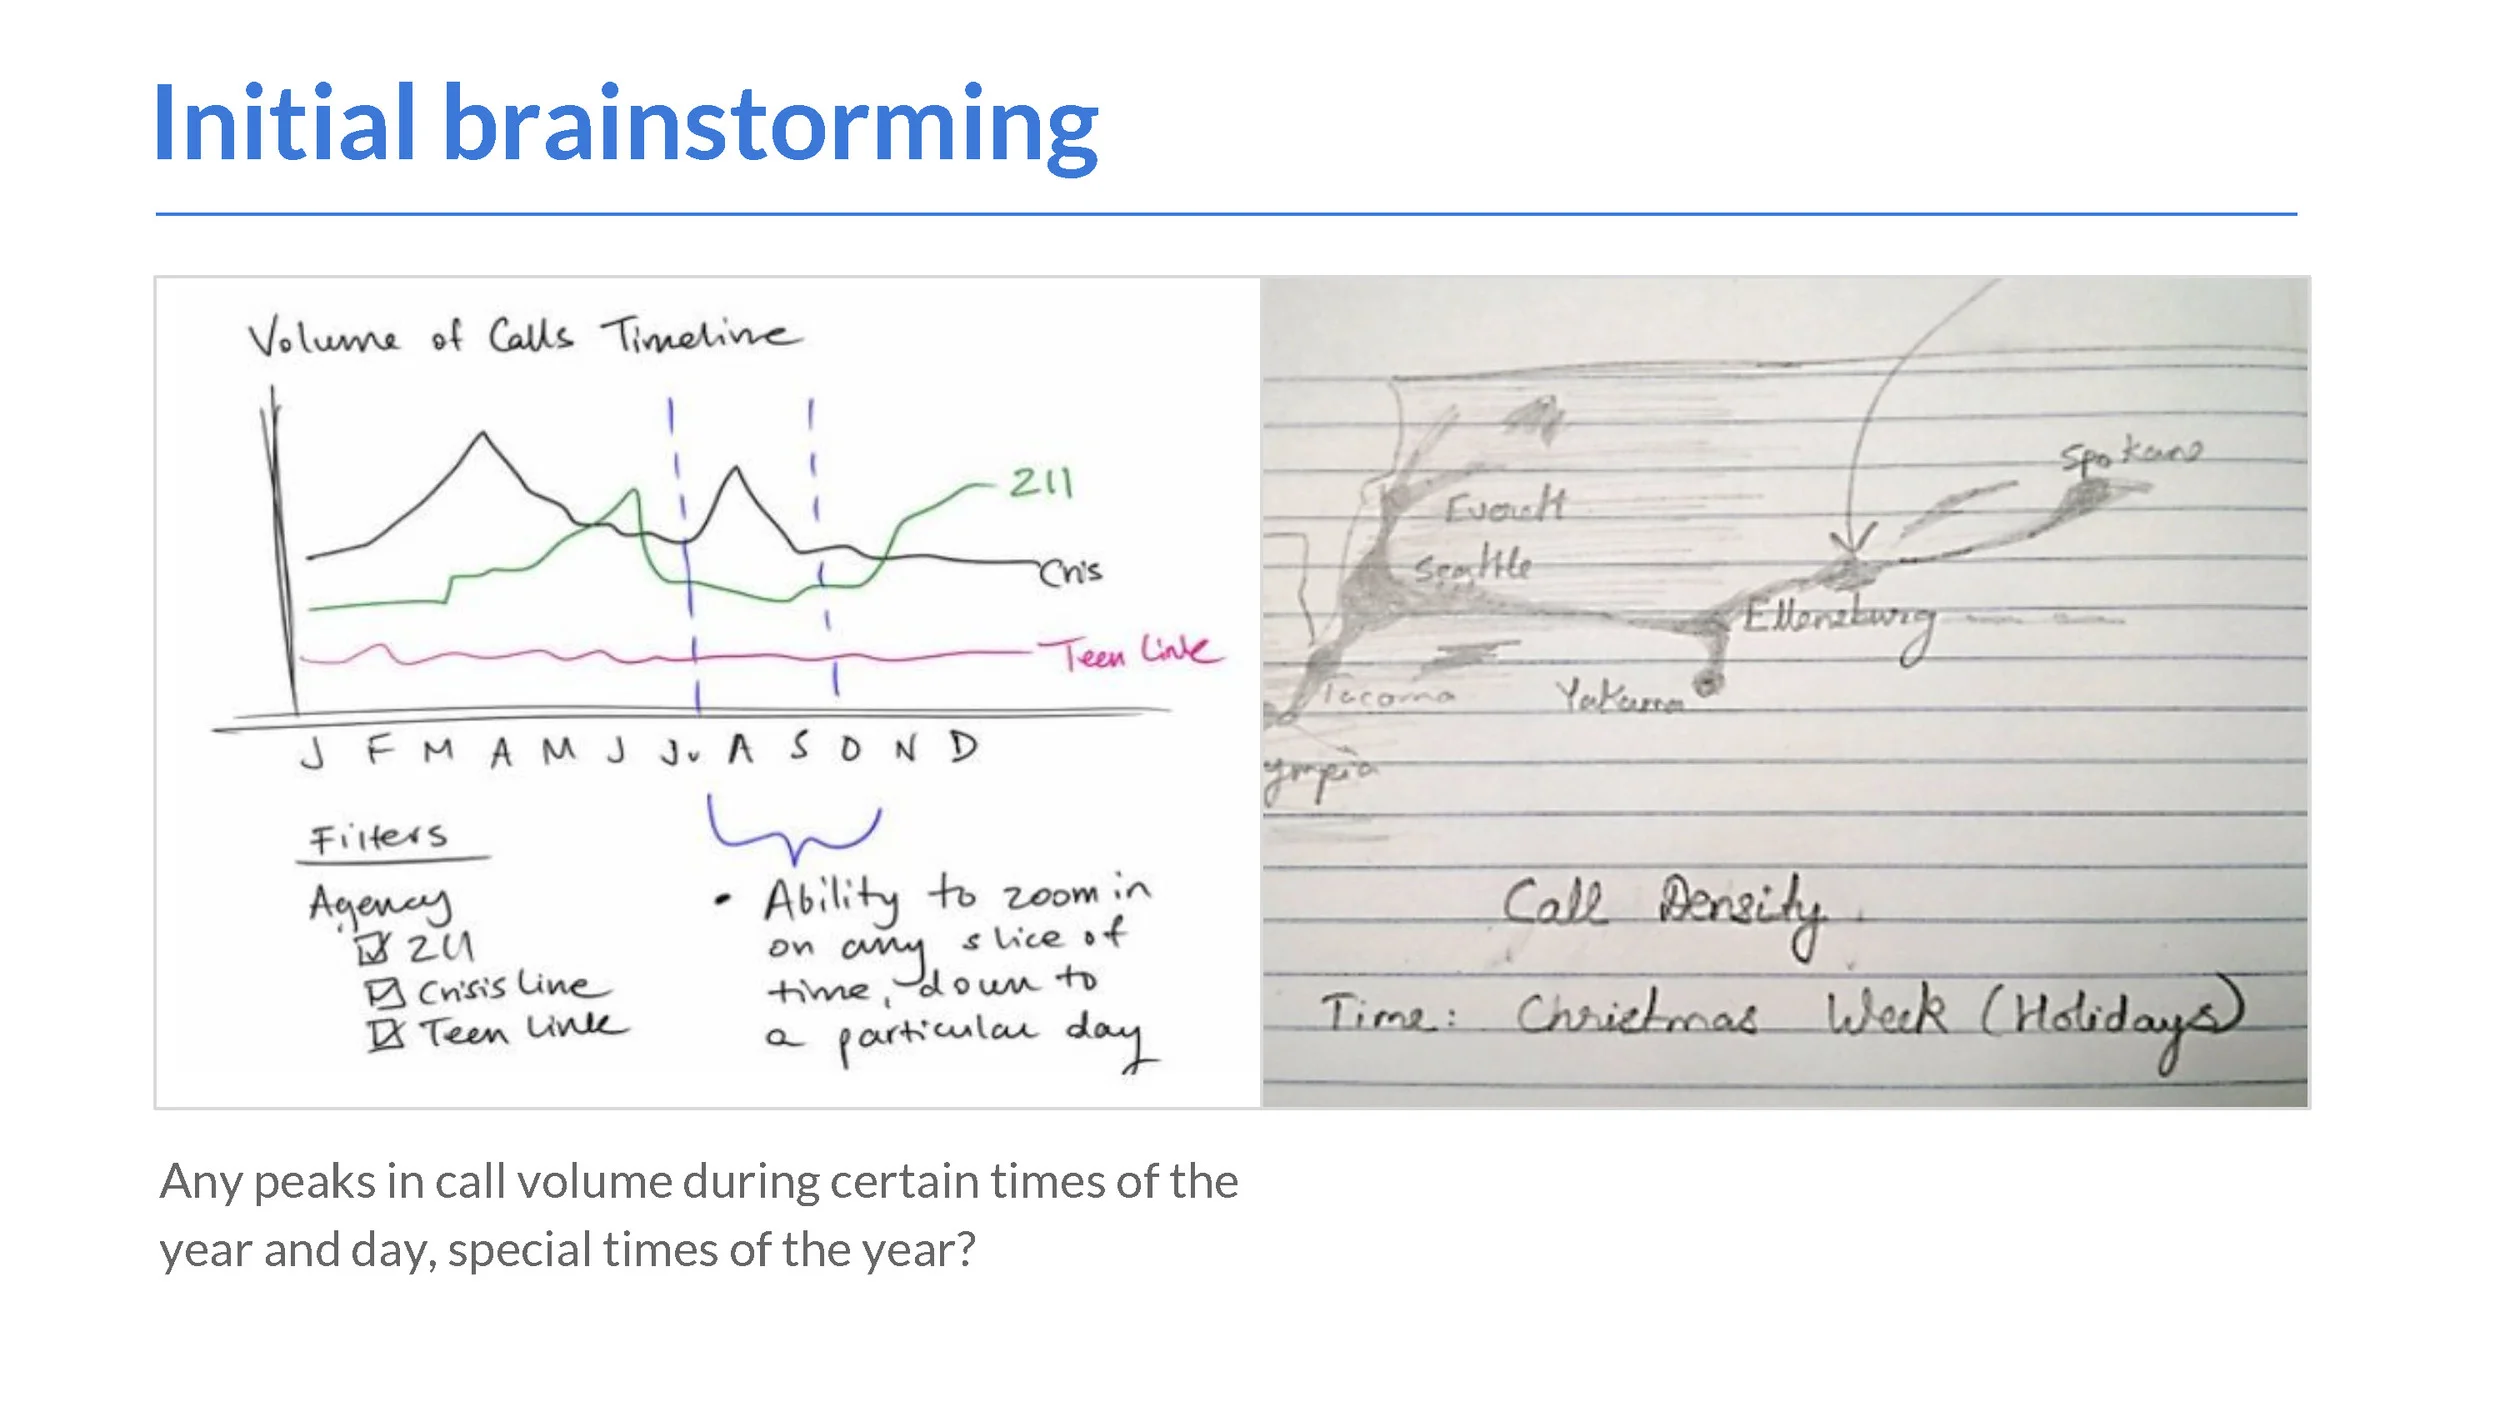 Initial brainstorming
Volume of Calls Timeline
211
Cris
Teen Link
J F M A M J Ju A S O N D
Filters
Agency
211
Crisis Line
Teen Link
• Ability to zoom in
on any slice of
time, down to
a particular day
Everett
Seattle
Tacoma
ympia
Yakama
Ellensburg
Spokane
Call Density.
Time: Christmas Week (Holidays)
Any peaks in call volume during certain times of the
year and day, special times of the year?